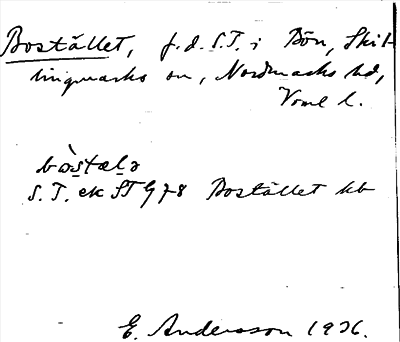 Bostället, f.d. S.T. i Bön, Skil-
lingmarks sn, Nordmarks hd,
Vrml l.
bòstælə
S.T. ek ST G 78 Bostället kb
E. Andersson 1926.